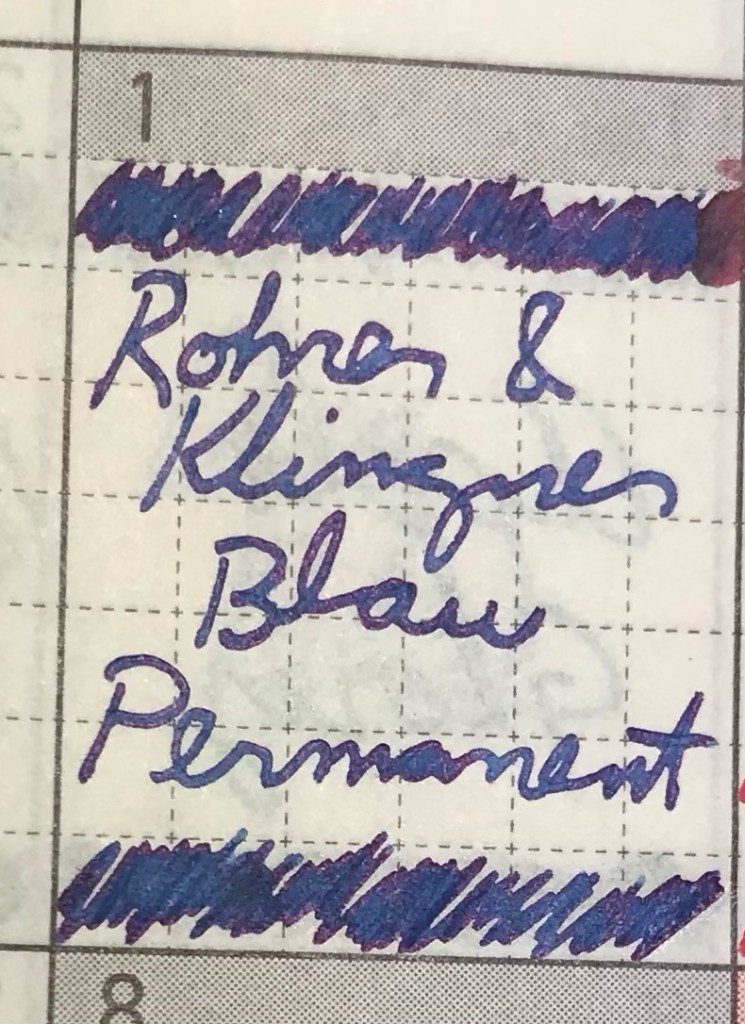 1
Rohrer &
Klingner
Blau
Permanent
8